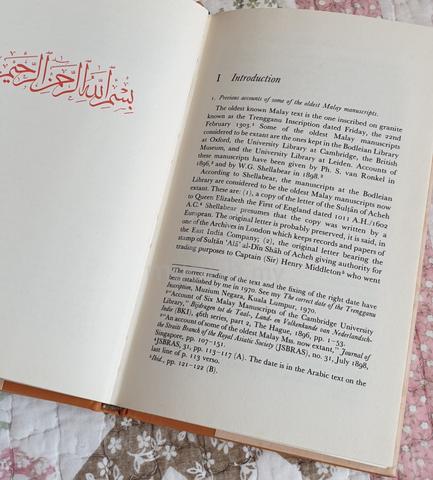 بسم الله الرحمن الرحيم
I Introduction
1. Previous accounts of some of the oldest Malay manuscripts.
The oldest known Malay text is the one inscribed on granite
known as the Trengganu Inscription dated Friday, the 22nd
February 1303.¹ Some of the oldest Malay manuscripts
considered to be extant are the ones kept in the Bodleian Library
at Oxford, the University Library at Cambridge, the British
Museum, and the University Library at Leiden. Accounts of
these manuscripts have been given by Ph. S. van Ronkel in
1896,² and by W.G. Shellabear in 1898.³
According to Shellabear, the manuscripts at the Bodleian
Library are considered to be the oldest Malay manuscripts now
extant. These are: (1), a copy of the letter of the Sulṭān of Acheh
to Queen Elizabeth the First of England dated 1011 A.H./1602
A.C.⁴ Shellabear presumes that the copy was written by a
European. The original letter is probably preserved, it is said, in
one of the Archives in London which keeps records and papers of
the East India Company; (2), the original letter bearing the
stamp of Sulṭān 'Alā' al-Dīn Shāh of Acheh giving authority for
trading purposes to Captain (Sir) Henry Middleton⁵ who went
¹The correct reading of the text and the fixing of the right date have
been established by me in 1970. See my The correct date of the Trengganu
Inscription, Muzium Negara, Kuala Lumpur, 1970.
²"Account of Six Malay Manuscripts of the Cambridge University
Library," Bijdragen tot de Taal-, Land- en Volkenkunde van Nederlandsch-
Indie (BKI), 46th series, part 2, The Hague, 1896, pp. 1–53.
³"An account of some of the oldest Malay Mss. now extant," Journal of
the Straits Branch of the Royal Asiatic Society (JSBRAS), no. 31, July 1898,
Singapore, pp. 107–151.
⁴JSBRAS, 31, pp. 113–117 (A). The date is in the Arabic text on the
last line of p. 113 verso.
⁵Ibid., pp. 121–122 (B).